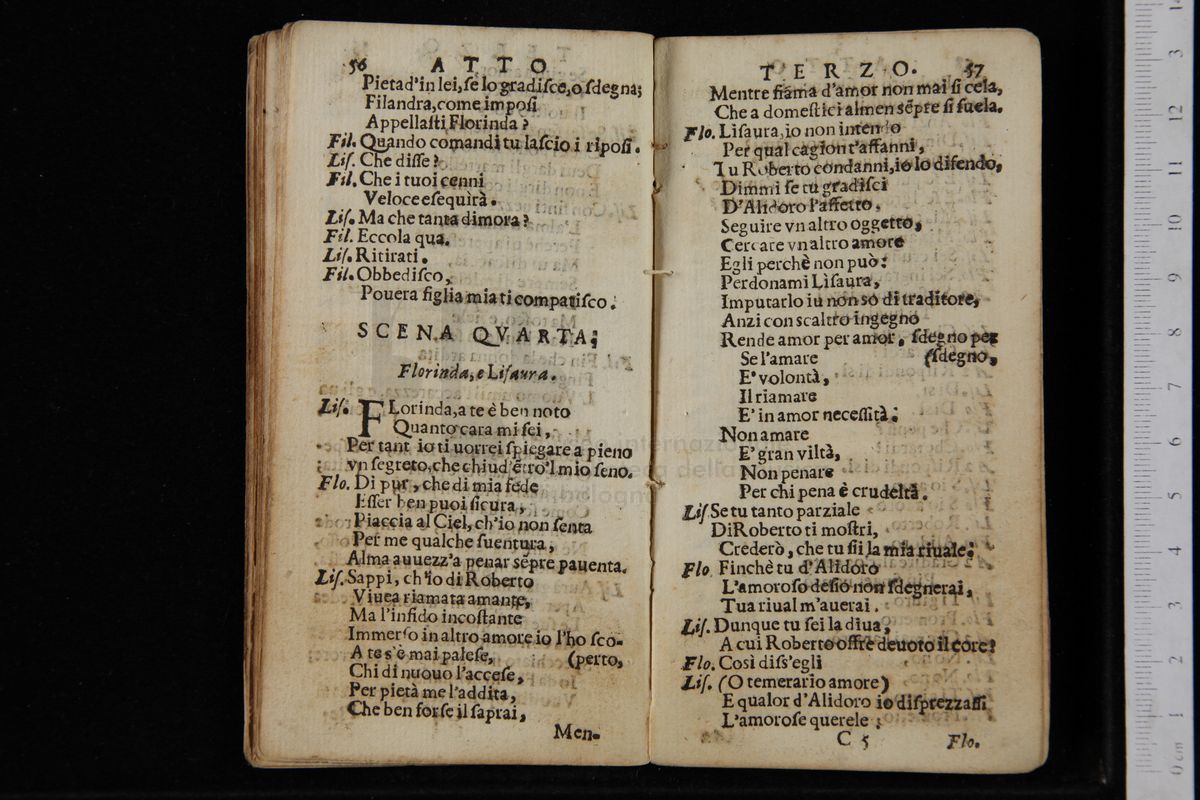 56 ATTO
Pietad'in lei, ſe lo gradiſce, o ſdegna;
Filandra, come impoſi
Appellaſti Florinda?
Fil. Quando comandi tu laſcio i ripoſi.
Liſ. Che diſſe?
Fil. Che i tuoi cenni
Veloce eſequirà.
Liſ. Ma che tanta dimora?
Fil. Eccola qua.
Liſ. Ritirati.
Fil. Obbediſco,
Pouera figlia mia ti compatiſco.
SCENA QVARTA;
Florinda, e Liſaura.
Liſ. FLorinda, a te è ben noto
Quanto cara mi ſei,
Per tant io ti uorrei ſpiegare a pieno
vn ſegreto, che chiud'ẽtro'l mio ſeno.
Flo. Di pur, che di mia fede
Eſſer ben puoi ſicura,
Piaccia al Ciel, ch'io non ſenta
Per me qualche ſuentura,
Alma auuezz'a penar sẽpre pauenta.
Liſ. Sappi, ch'io di Roberto
Viuea riamata amante,
Ma l'infido incoſtante
Immerſo in altro amore io l'ho ſco-
A te s'è mai paleſe, (perto,
Chi di nuouo l'acceſe,
Per pietà me l'addita,
Che ben forſe il ſaprai,
Men-
TERZO. 57
Mentre fiãma d'amor non mai ſi cela,
Che a domeſtici almen sẽpre ſi ſuela.
Flo. Liſaura, io non intendo
Per qual cagion t'affanni,
Tu Roberto condanni, io lo difendo,
Dimmi ſe tu gradiſci
D'Alidoro l'affetto.
Seguire vn altro oggetto,
Cercare vn altro amore
Egli perchè non può?
Perdonami Liſaura,
Imputarlo iu non sò di traditore,
Anzi con scaltro ingegno
Rende amor per amor, ſdegno per
Se l'amare (ſdegno,
E' volontà,
Il riamare
E' in amor neceſſità;
Non amare
E' gran viltà,
Non penare
Per chi pena è crudeltà.
Liſ Se tu tanto parziale
DiRoberto ti moſtri,
Crederò, che tu ſii la mia riuale;
Flo. Finchè tu d'Alidoro
L'amoroſo deſio non ſdegnerai,
Tua riual m'auerai.
Liſ. Dunque tu ſei la diua,
A cui Roberto offrè deuoto il core?
Flo. Così diſs'egli
Liſ. (O temerario amore)
E qualor d'Alidoro io diſprezzaſſi
L'amoroſe querele;
C 5 Flo.